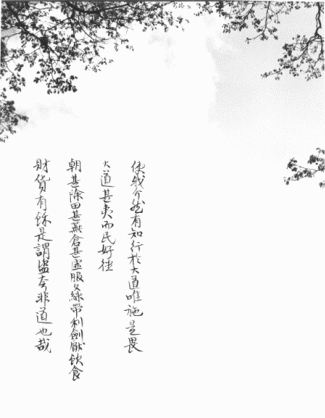 使我介然有知行於大道唯施是畏
大道甚夷而民好徑
朝甚除田甚蕪倉甚虛服文綵帶利劍厭飲食
財貨有餘是謂盜夸非道也哉